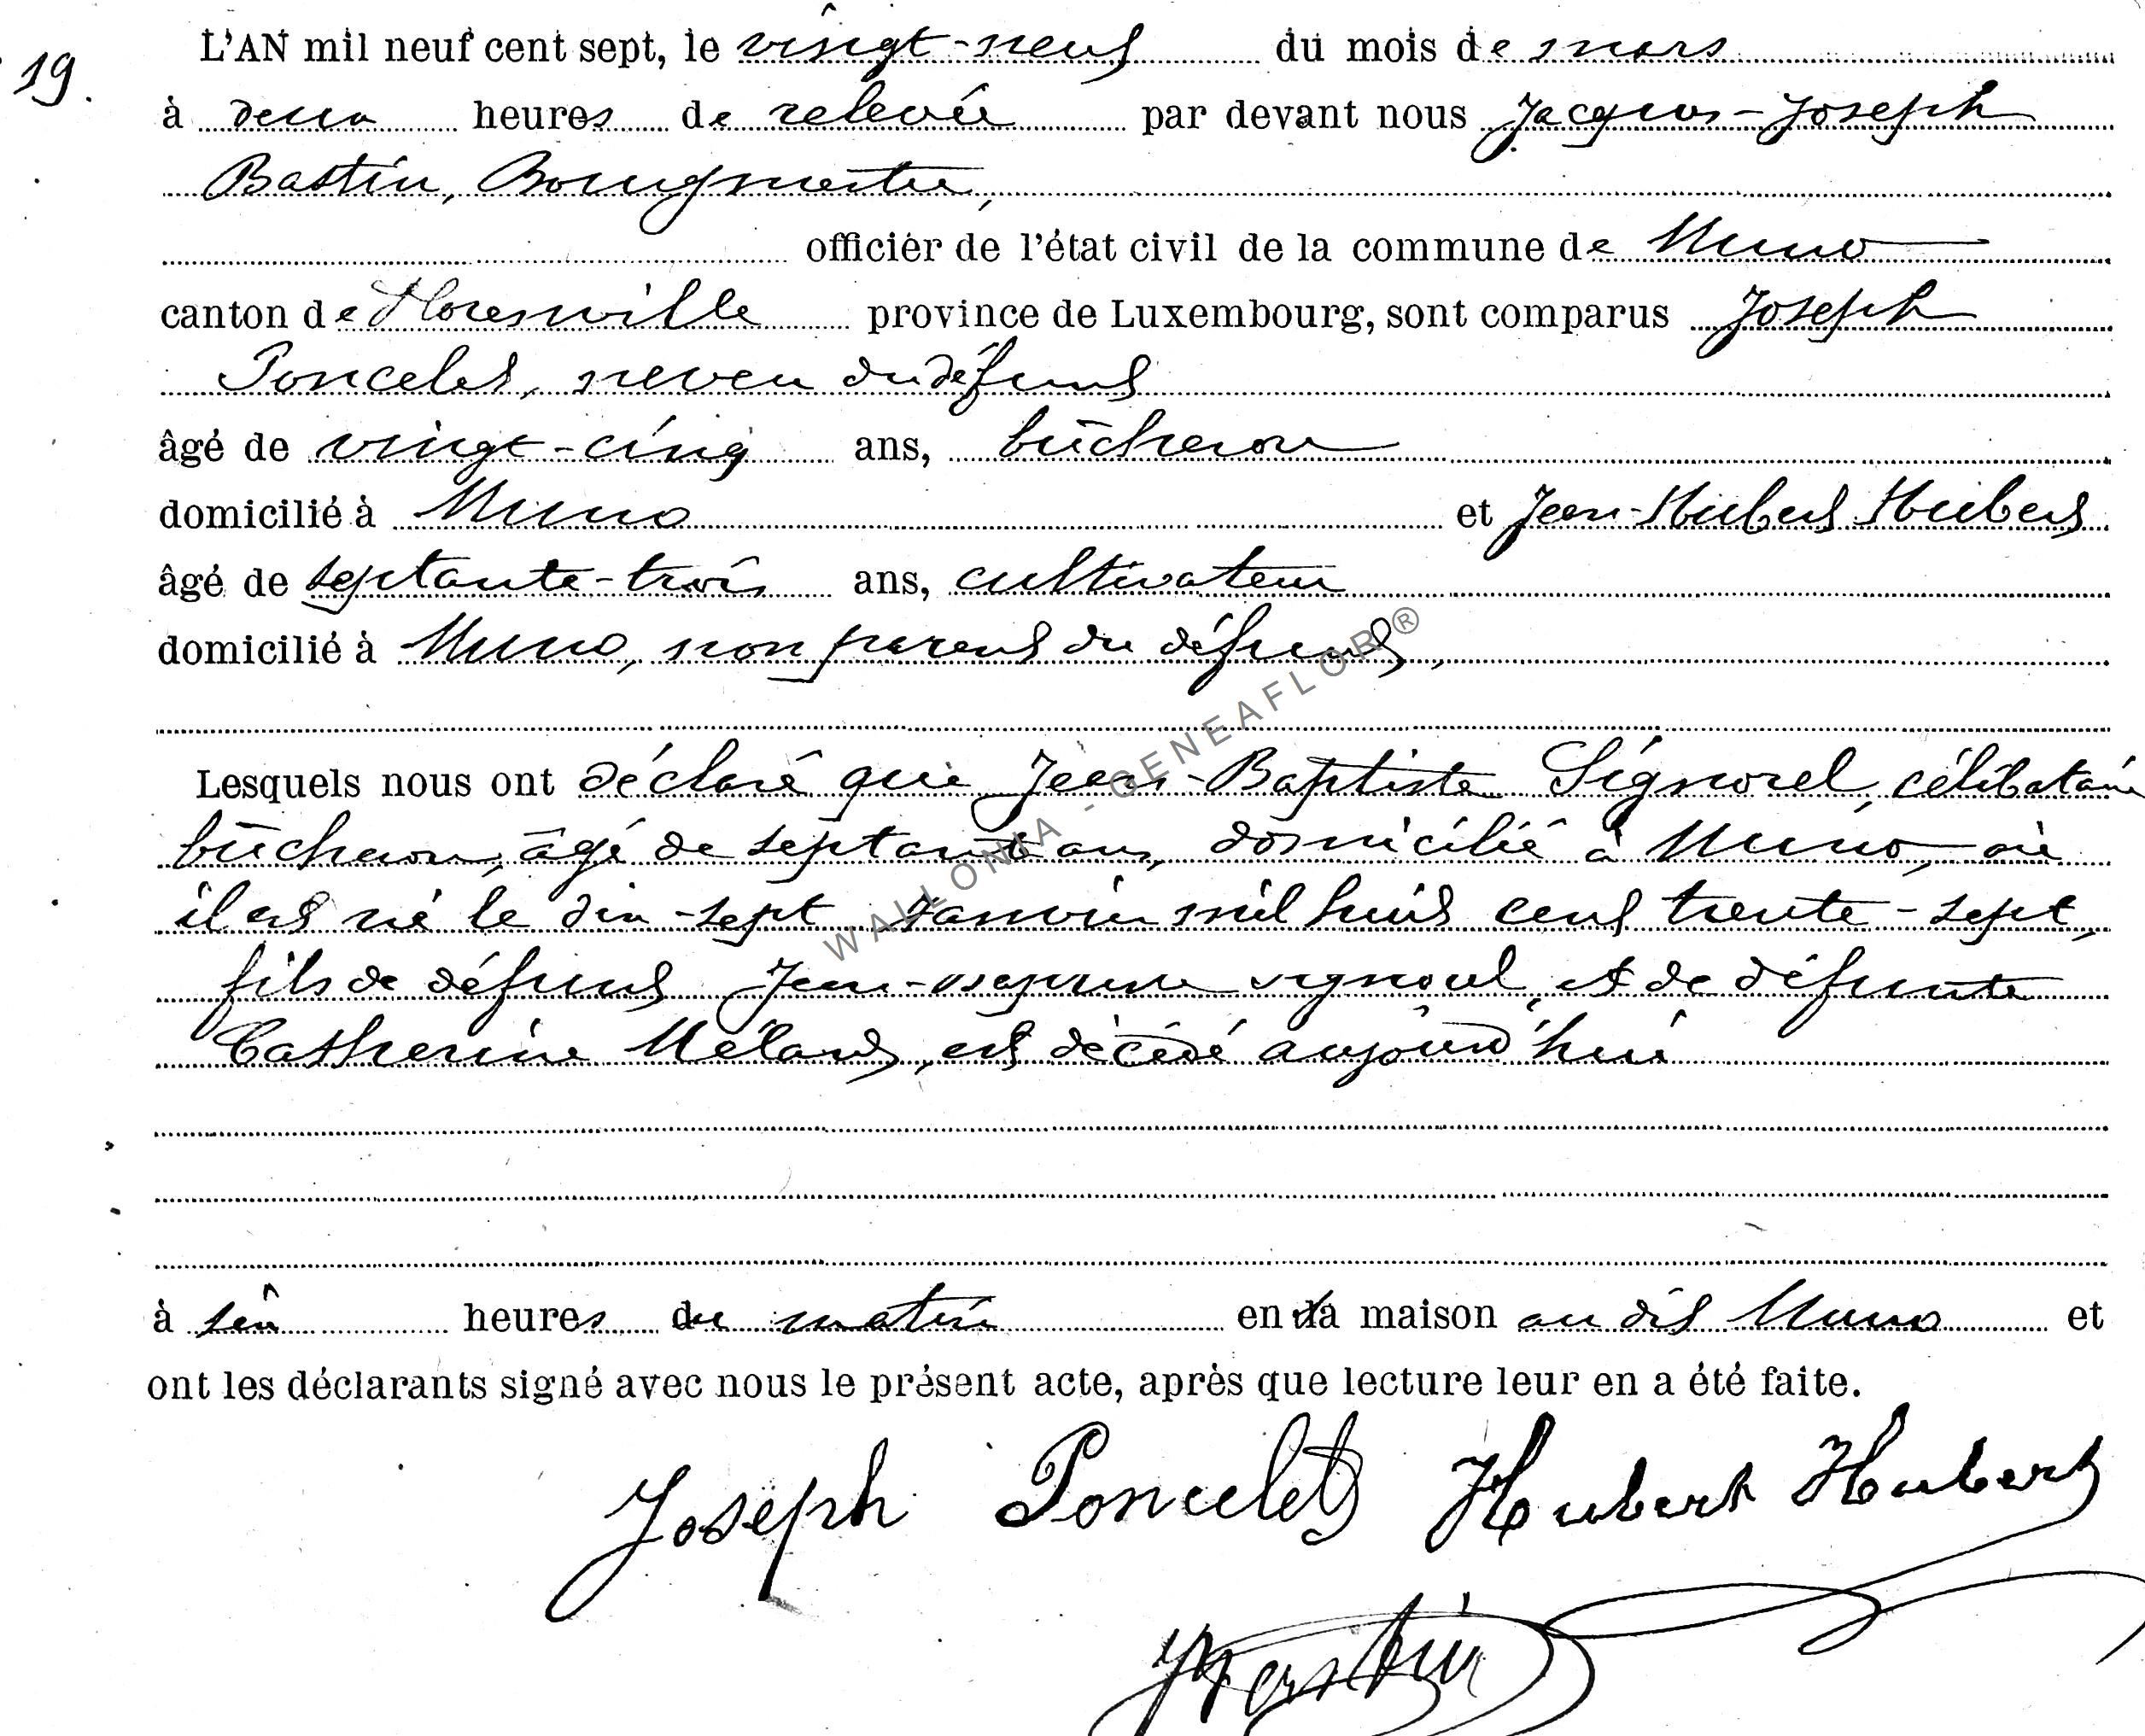 19.
L'AN mil neuf cent sept, le vingt-neuf du mois de mars
à deux heures de relevée par devant nous Jacques-Joseph
Bastin, Bourgmestre,
officier de l'état civil de la commune de Muno
canton de Florenville province de Luxembourg, sont comparus Joseph
Poncelet, neveu du défunt
âgé de vingt-cinq ans, bûcheron
domicilié à Muno et Jean-Hubert Hubert
âgé de septante-trois ans, cultivateur
domicilié à Muno, non parent du défunt,
Lesquels nous ont déclaré que Jean-Baptiste Signorel, célibataire
bûcheron, âgé de septante ans, domicilié à Muno, où
il est né le dix-sept Janvier mil huit cent trente-sept,
fils de défunt Jean- et de défunte
Catherine Mélard, est décédé aujourd'hui
à heures du matin en la maison au dit Muno et
ont les déclarants signé avec nous le présent acte, après que lecture leur en a été faite.
Joseph Poncelet Hubert Hubert
JBastin
WALLONIA - GENEAFLOR®